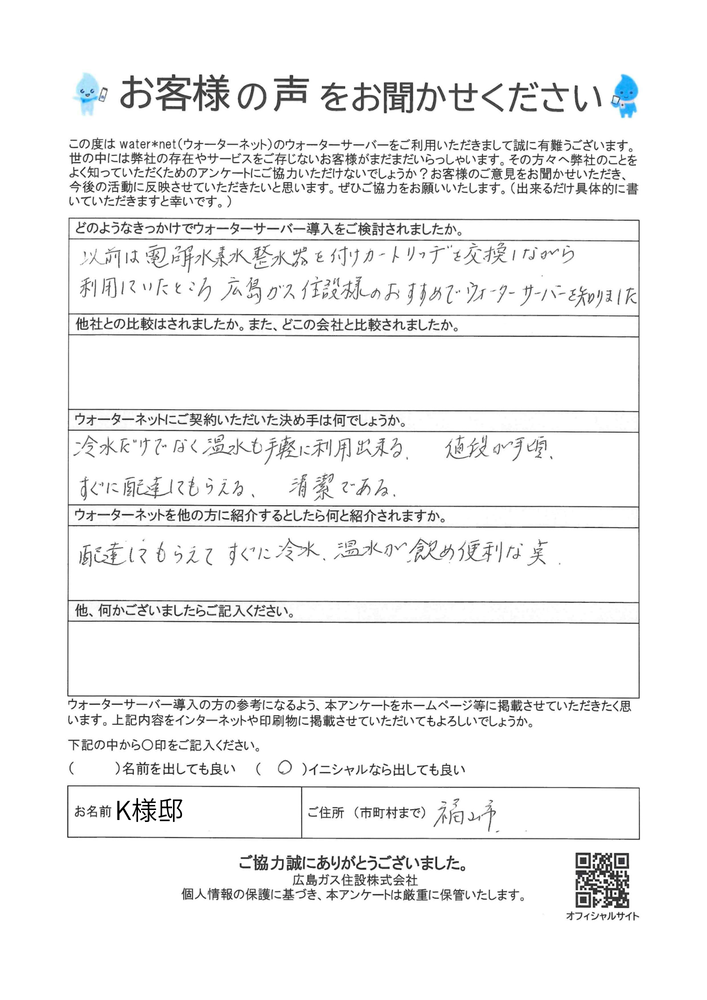 お客様の声をお聞かせください
この度は water*net(ウォーターネット)のウォーターサーバーをご利用いただきまして誠に有難うございます。
世の中には弊社の存在やサービスをご存じないお客様がまだまだいらっしゃいます。その方々へ弊社のことを
よく知っていただくためのアンケートにご協力いただけないでしょうか?お客様のご意見をお聞かせいただき、
今後の活動に反映させていただきたいと思います。ぜひご協力をお願いいたします。(出来るだけ具体的に書
いていただきますと幸いです。)
どのようなきっかけでウォーターサーバー導入をご検討されましたか。
以前は電解水素水整水器を付けカートリッヂを交換しながら
利用していたところ 広島ガス住設様のおすすめでウォーターサーバーを知りました
他社との比較はされましたか。また、どこの会社と比較されましたか。
ウォーターネットにご契約いただいた決め手は何でしょうか。
冷水だけでなく温水も手軽に利用出来る、 値段が手頃、
すぐに配達してもらえる、 清潔である、
ウォーターネットを他の方に紹介するとしたら何と紹介されますか。
配達してもらえて すぐに冷水、温水が飲め便利な点、
他、何かございましたらご記入ください。
ウォーターサーバー導入の方の参考になるよう、本アンケートをホームページ等に掲載させていただきたく思
います。上記内容をインターネットや印刷物に掲載させていただいてもよろしいでしょうか。
下記の中から〇印をご記入ください。
( )名前を出しても良い ( ○ )イニシャルなら出しても良い
お名前 K様邸 ご住所 (市町村まで) 福山市
ご協力誠にありがとうございました。
広島ガス住設株式会社
個人情報の保護に基づき、本アンケートは厳重に保管いたします。
オフィシャルサイト